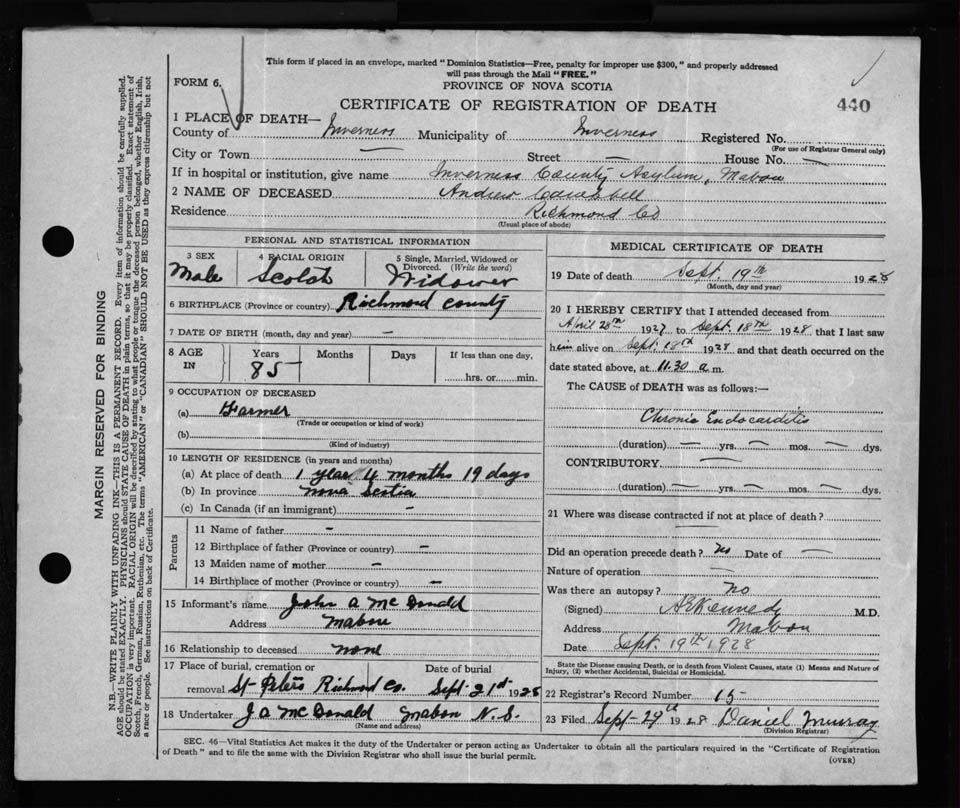 This form if placed in an envelope, marked "Dominion Statistics—Free, penalty for improper use $300," and properly addressed
will pass through the Mail "FREE."
FORM 6.
PROVINCE OF NOVA SCOTIA
CERTIFICATE OF REGISTRATION OF DEATH
440
1 PLACE OF DEATH—
County of Inverness Municipality of Inverness Registered No.
(For use of Registrar General only)
City or Town — Street — House No. —
If in hospital or institution, give name Inverness County Asylum, Mabou
2 NAME OF DECEASED Andrew Campbell
Residence Richmond Co
(Usual place of abode)
PERSONAL AND STATISTICAL INFORMATION
3 SEX
Male
4 RACIAL ORIGIN
Scotch
5 Single, Married, Widowed or
Divorced. (Write the word)
Widower
6 BIRTHPLACE (Province or country) Richmond County
7 DATE OF BIRTH (month, day and year) —
8 AGE
IN
Years Months Days If less than one day,
85 hrs. or min.
9 OCCUPATION OF DECEASED
(a) Farmer
(Trade or occupation or kind of work)
(b)
(Kind of industry)
10 LENGTH OF RESIDENCE (in years and months)
(a) At place of death 1 year 4 months 19 days
(b) In province Nova Scotia
(c) In Canada (if an immigrant) -
Parents
11 Name of father -
12 Birthplace of father (Province or country) -
13 Maiden name of mother -
14 Birthplace of mother (Province or country) -
15 Informant's name John A McDonald
Address Mabou
16 Relationship to deceased none
17 Place of burial, cremation or Date of burial
removal St Peters Richmond Co. Sept 21st 1928
18 Undertaker J A McDonald Mabou N.S.
(Name and address)
MEDICAL CERTIFICATE OF DEATH
19 Date of death Sept. 19th 1928
(Month, day and year)
20 I HEREBY CERTIFY that I attended deceased from
April 28th 1927 to Sept. 18th 1928 that I last saw
him alive on Sept. 18th 1928 and that death occurred on the
date stated above, at 11.30 a.m.
The CAUSE of DEATH was as follows:—
Chronic Endocarditis
(duration) — yrs. — mos. — dys.
CONTRIBUTORY —
(duration) — yrs. — mos. — dys.
21 Where was disease contracted if not at place of death?
—
Did an operation precede death? No Date of —
Nature of operation —
Was there an autopsy? No
(Signed) Kennedy M.D.
Address Mabou
Date Sept. 19th 1928
State the Disease causing Death, or in death from Violent Causes, state (1) Means and Nature of
Injury, (2) whether Accidental, Suicidal or Homicidal.
22 Registrar's Record Number 15
23 Filed Sept 29th 1928 Daniel Murray
(Division Registrar)
SEC. 46—Vital Statistics Act makes it the duty of the Undertaker or person acting as Undertaker to obtain all the particulars required in the "Certificate of Registration
of Death" and to file the same with the Division Registrar who shall issue the burial permit.
(OVER)
MARGIN RESERVED FOR BINDING
N.B.—WRITE PLAINLY WITH UNFADING INK—THIS IS A PERMANENT RECORD. Every item of information should be carefully supplied.
AGE should be stated EXACTLY. PHYSICIANS should STATE CAUSE OF DEATH in plain terms, so that it may be properly classified. Exact statement of
OCCUPATION is very important. RACIAL ORIGIN will be described by stating to what people or tongue the deceased person belonged, whether English, Irish,
Scotch, French, German, Russian, Ruthenian, etc. The terms "AMERICAN" or "CANADIAN" SHOULD NOT BE USED as they express citizenship but not
a race or people. See instructions on back of Certificate.